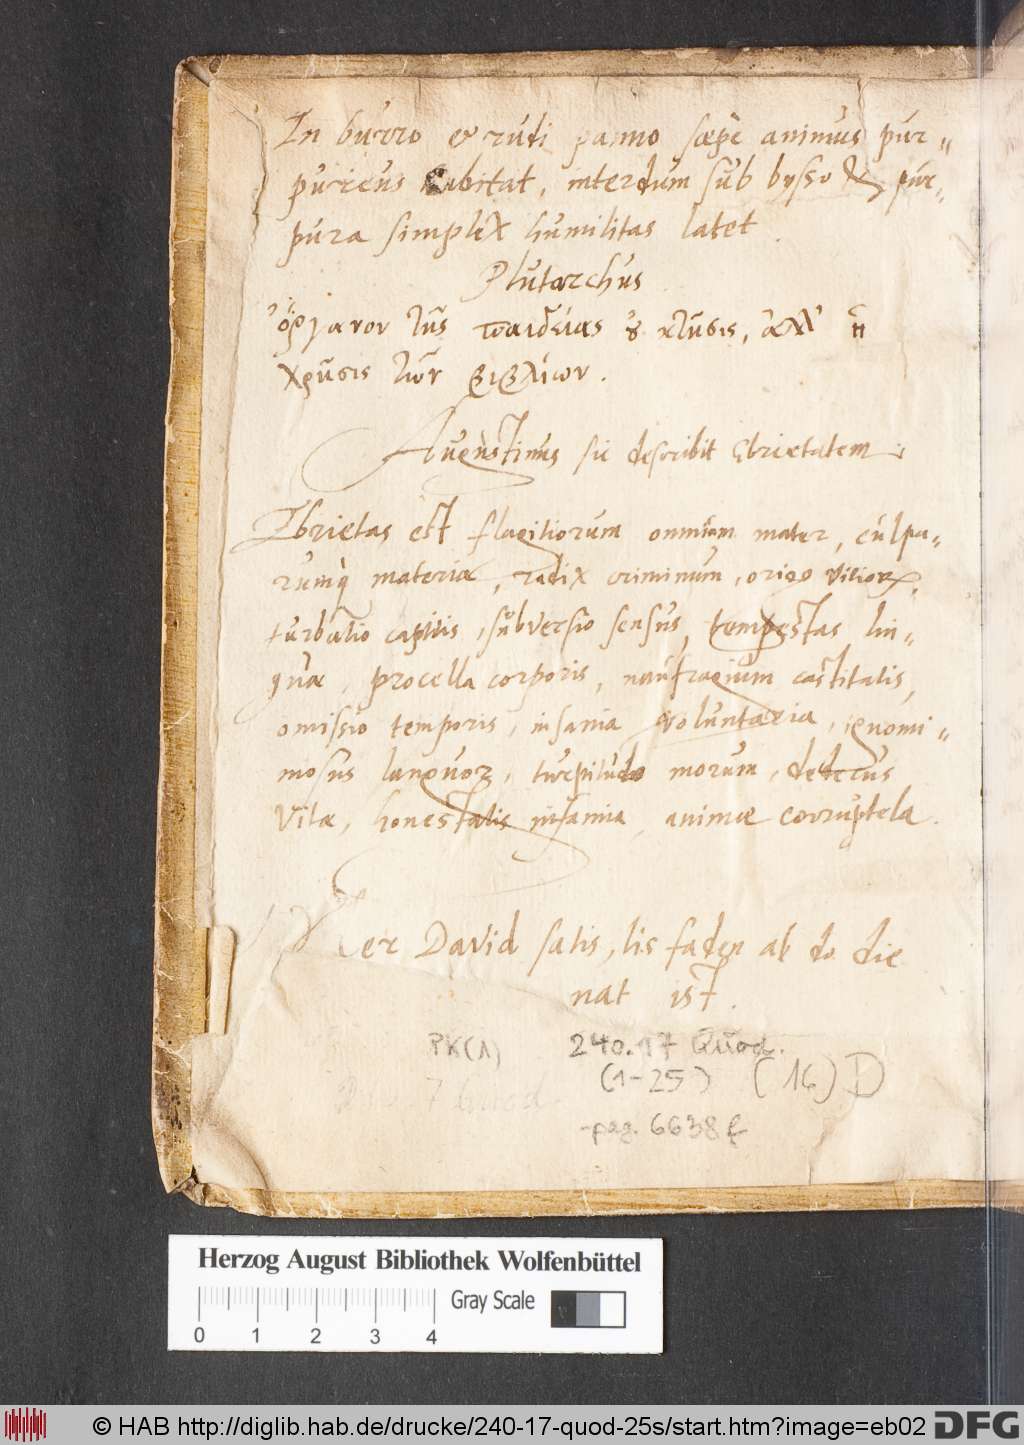 In burro et rudi panno sæpe animus pur=
pureus habitat, interdum sub bysso & pur=
pura simplex humilitas latet.
Plutarchus
ὄργανον τῆς παιδείας ȣ κτῆσις, ἀλλ' ἡ
χρῆσις τῶν βιβλίων.
Augustinus sic describit Ebrietatem.
Ebrietas est flagitiorum omnium mater, culpa=
rumq materia, radix criminum, origo vitior,
turbatio capitis, subversio sensus, tempestas lin=
guæ, procella corporis, naufragium castitatis,
omissio temporis, insania voluntaria, ignomi=
niosus languor, turpitudo morum, dedecus
vitæ, honestatis infamia, animæ corruptela.
Der David satis, lis faden ab do die
nat ist.
PK(1) 240.17 Quod.
(1-25) (16) D
-pag. 6638 f
Herzog August Bibliothek Wolfenbüttel
Gray Scale
0 1 2 3 4
© HAB http://diglib.hab.de/drucke/240-17-quod-25s/start.htm?image=eb02 DFG